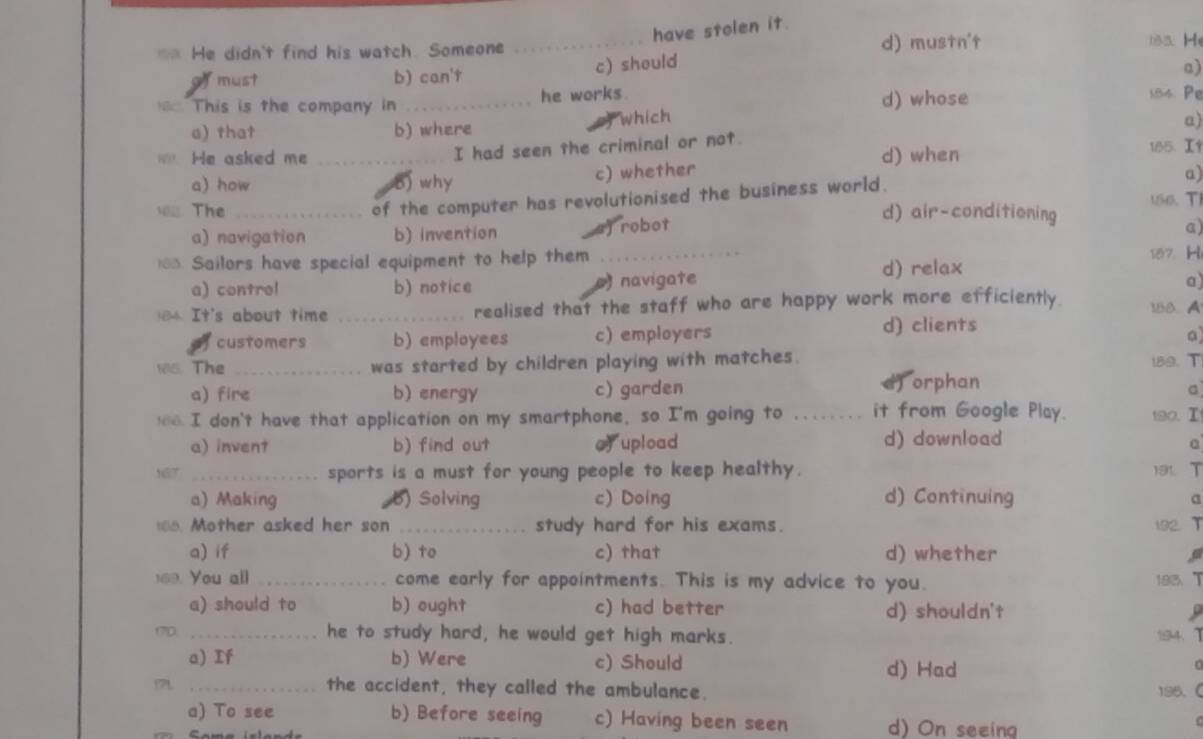 159. He didn't find his watch. Someone .............. have stolen it.
a) must b) can't c) should d) mustn't
160. This is the company in .............. he works.
a) that b) where c) which d) whose
161. He asked me .............. I had seen the criminal or not.
a) how b) why c) whether d) when
162. The .............. of the computer has revolutionised the business world.
a) navigation b) invention c) robot d) air-conditioning
163. Sailors have special equipment to help them ..............
a) control b) notice c) navigate d) relax
164. It's about time .............. realised that the staff who are happy work more efficiently.
a) customers b) employees c) employers d) clients
165. The .............. was started by children playing with matches.
a) fire b) energy c) garden d) orphan
166. I don't have that application on my smartphone, so I'm going to ........ it from Google Play.
a) invent b) find out c) upload d) download
167. .............. sports is a must for young people to keep healthy.
a) Making b) Solving c) Doing d) Continuing
168. Mother asked her son .............. study hard for his exams.
a) if b) to c) that d) whether
169. You all .............. come early for appointments. This is my advice to you.
a) should to b) ought c) had better d) shouldn't
170. .............. he to study hard, he would get high marks.
a) If b) Were c) Should d) Had
171. .............. the accident, they called the ambulance.
a) To see b) Before seeing c) Having been seen d) On seeing
Some islands
183. He
a)
184. Pe
a)
185. It
a)
186. Th
a)
187. H
a)
188. A
a)
189. T
a
190. I
a
191. T
a
192. T
193. T
194. T
a
195.